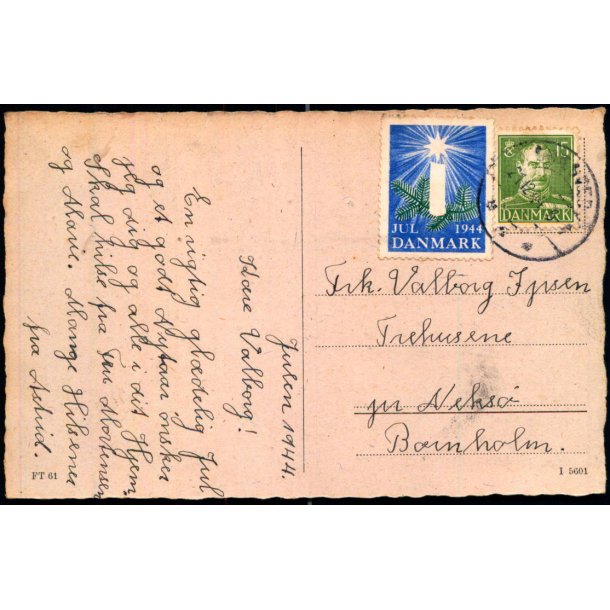 Julen 1944.
Kære Valborg!
En rigtig glædelig Jul
og et godt Nytaar ønsker
jeg dig og alle i dit Hjem.
Skal hilse fra Mortensen
og Marie. Mange Hilsener
fra Astrid.
FT 61
JUL 1944
DANMARK
15
DANMARK
Frk. Valborg Ipsen
Trehusene
pr Neksø
Bornholm.
I 5601